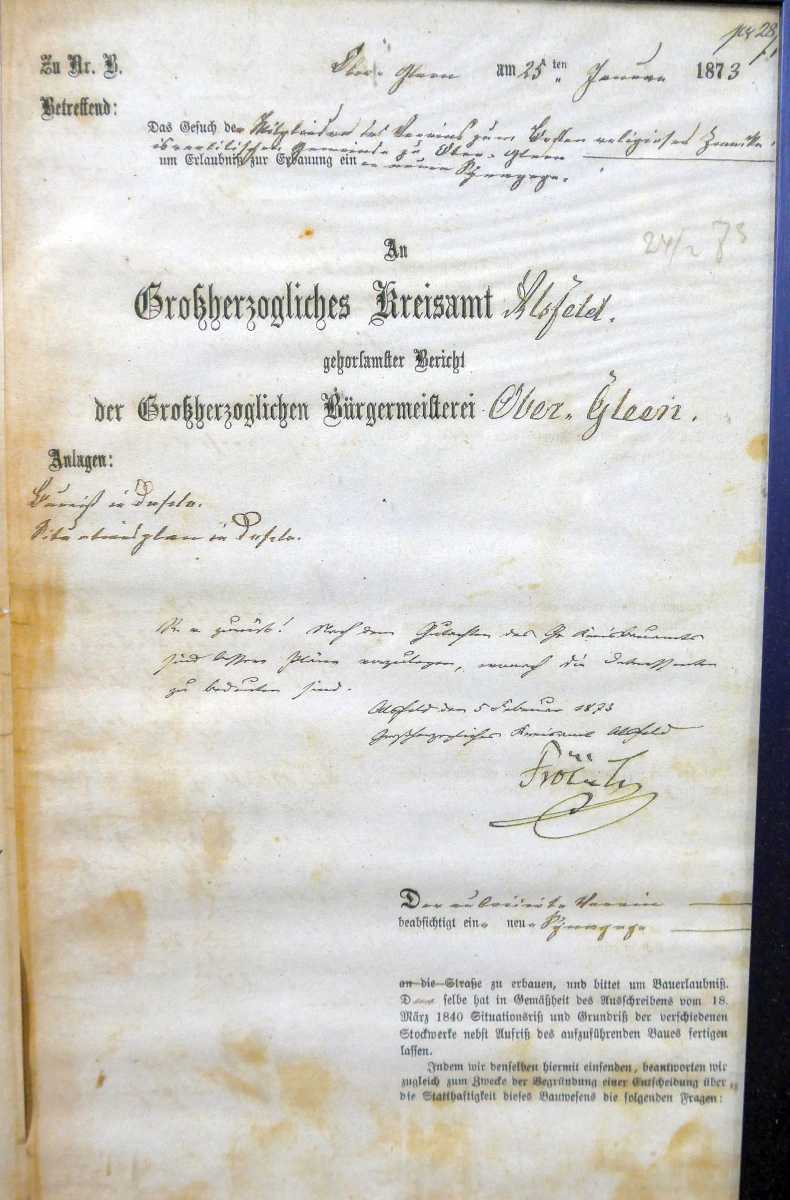 pr 28/1
Zu Nr. B. Ober-Gleen am 25ten Januar 1873
Betreffend:
Das Gesuch der Mitglieder des Vereins zum Besten religiöser Zwecke
israelitischen Gemeinde zu Ober-Gleen
um Erlaubniß zur Erbauung einer neuen Synagoge.
24/2 73
An
Großherzogliches Kreisamt Alsfeld.
gehorsamster Bericht
der Großherzoglichen Bürgermeisterei Ober-Gleen.
Anlagen:
Bauriß in Duplo.
Situationsplan in Duplo.
zurück! Nach dem Gutachten des Gr. Kreisbauamts
sind bessere Pläne vorzulegen, wonach die Interessenten
zu bedeuten sind.
Alsfeld den 5 Februar 1873
Großherzogliches Kreisamt Alsfeld
Der rubricirte Verein
beabsichtigt eine neue Synagoge
an die Straße zu erbauen, und bittet um Bauerlaubniß.
Derselbe hat in Gemäßheit des Ausschreibens vom 18.
März 1840 Situationsriß und Grundriß der verschiedenen
Stockwerke nebst Aufriß des aufzuführenden Baues fertigen
lassen.
Indem wir denselben hiermit einsenden, beantworten wir
zugleich zum Zwecke der Begründung einer Entscheidung über
die Statthaftigkeit dieses Bauwesens die folgenden Fragen: